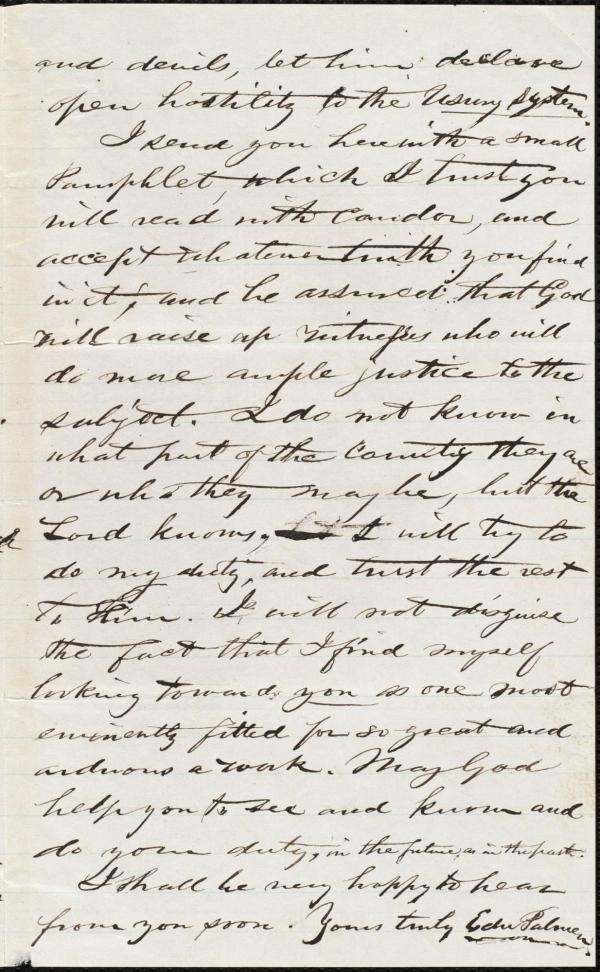 and devils, let him declare
open hostility to the Usury System.
I send you herewith a small
Pamphlet, which I trust you
will read with Candor, and
accept whatever truth you find
in it; and be assured that God
will raise up witnesses who will
do more ample justice to the
subject. I do not know in
what part of the Country they are
or who they may be, but the
Lord knows, I will try to
do my duty, and trust the rest
to Him. I will not disguise
the fact that I find myself
looking towards you as one most
eminently fitted for so great and
arduous a work. May God
help you to see and know and
do your duty, in the future, as in the past.
I shall be very happy to hear
from you soon. Yours truly Edw Palmer.